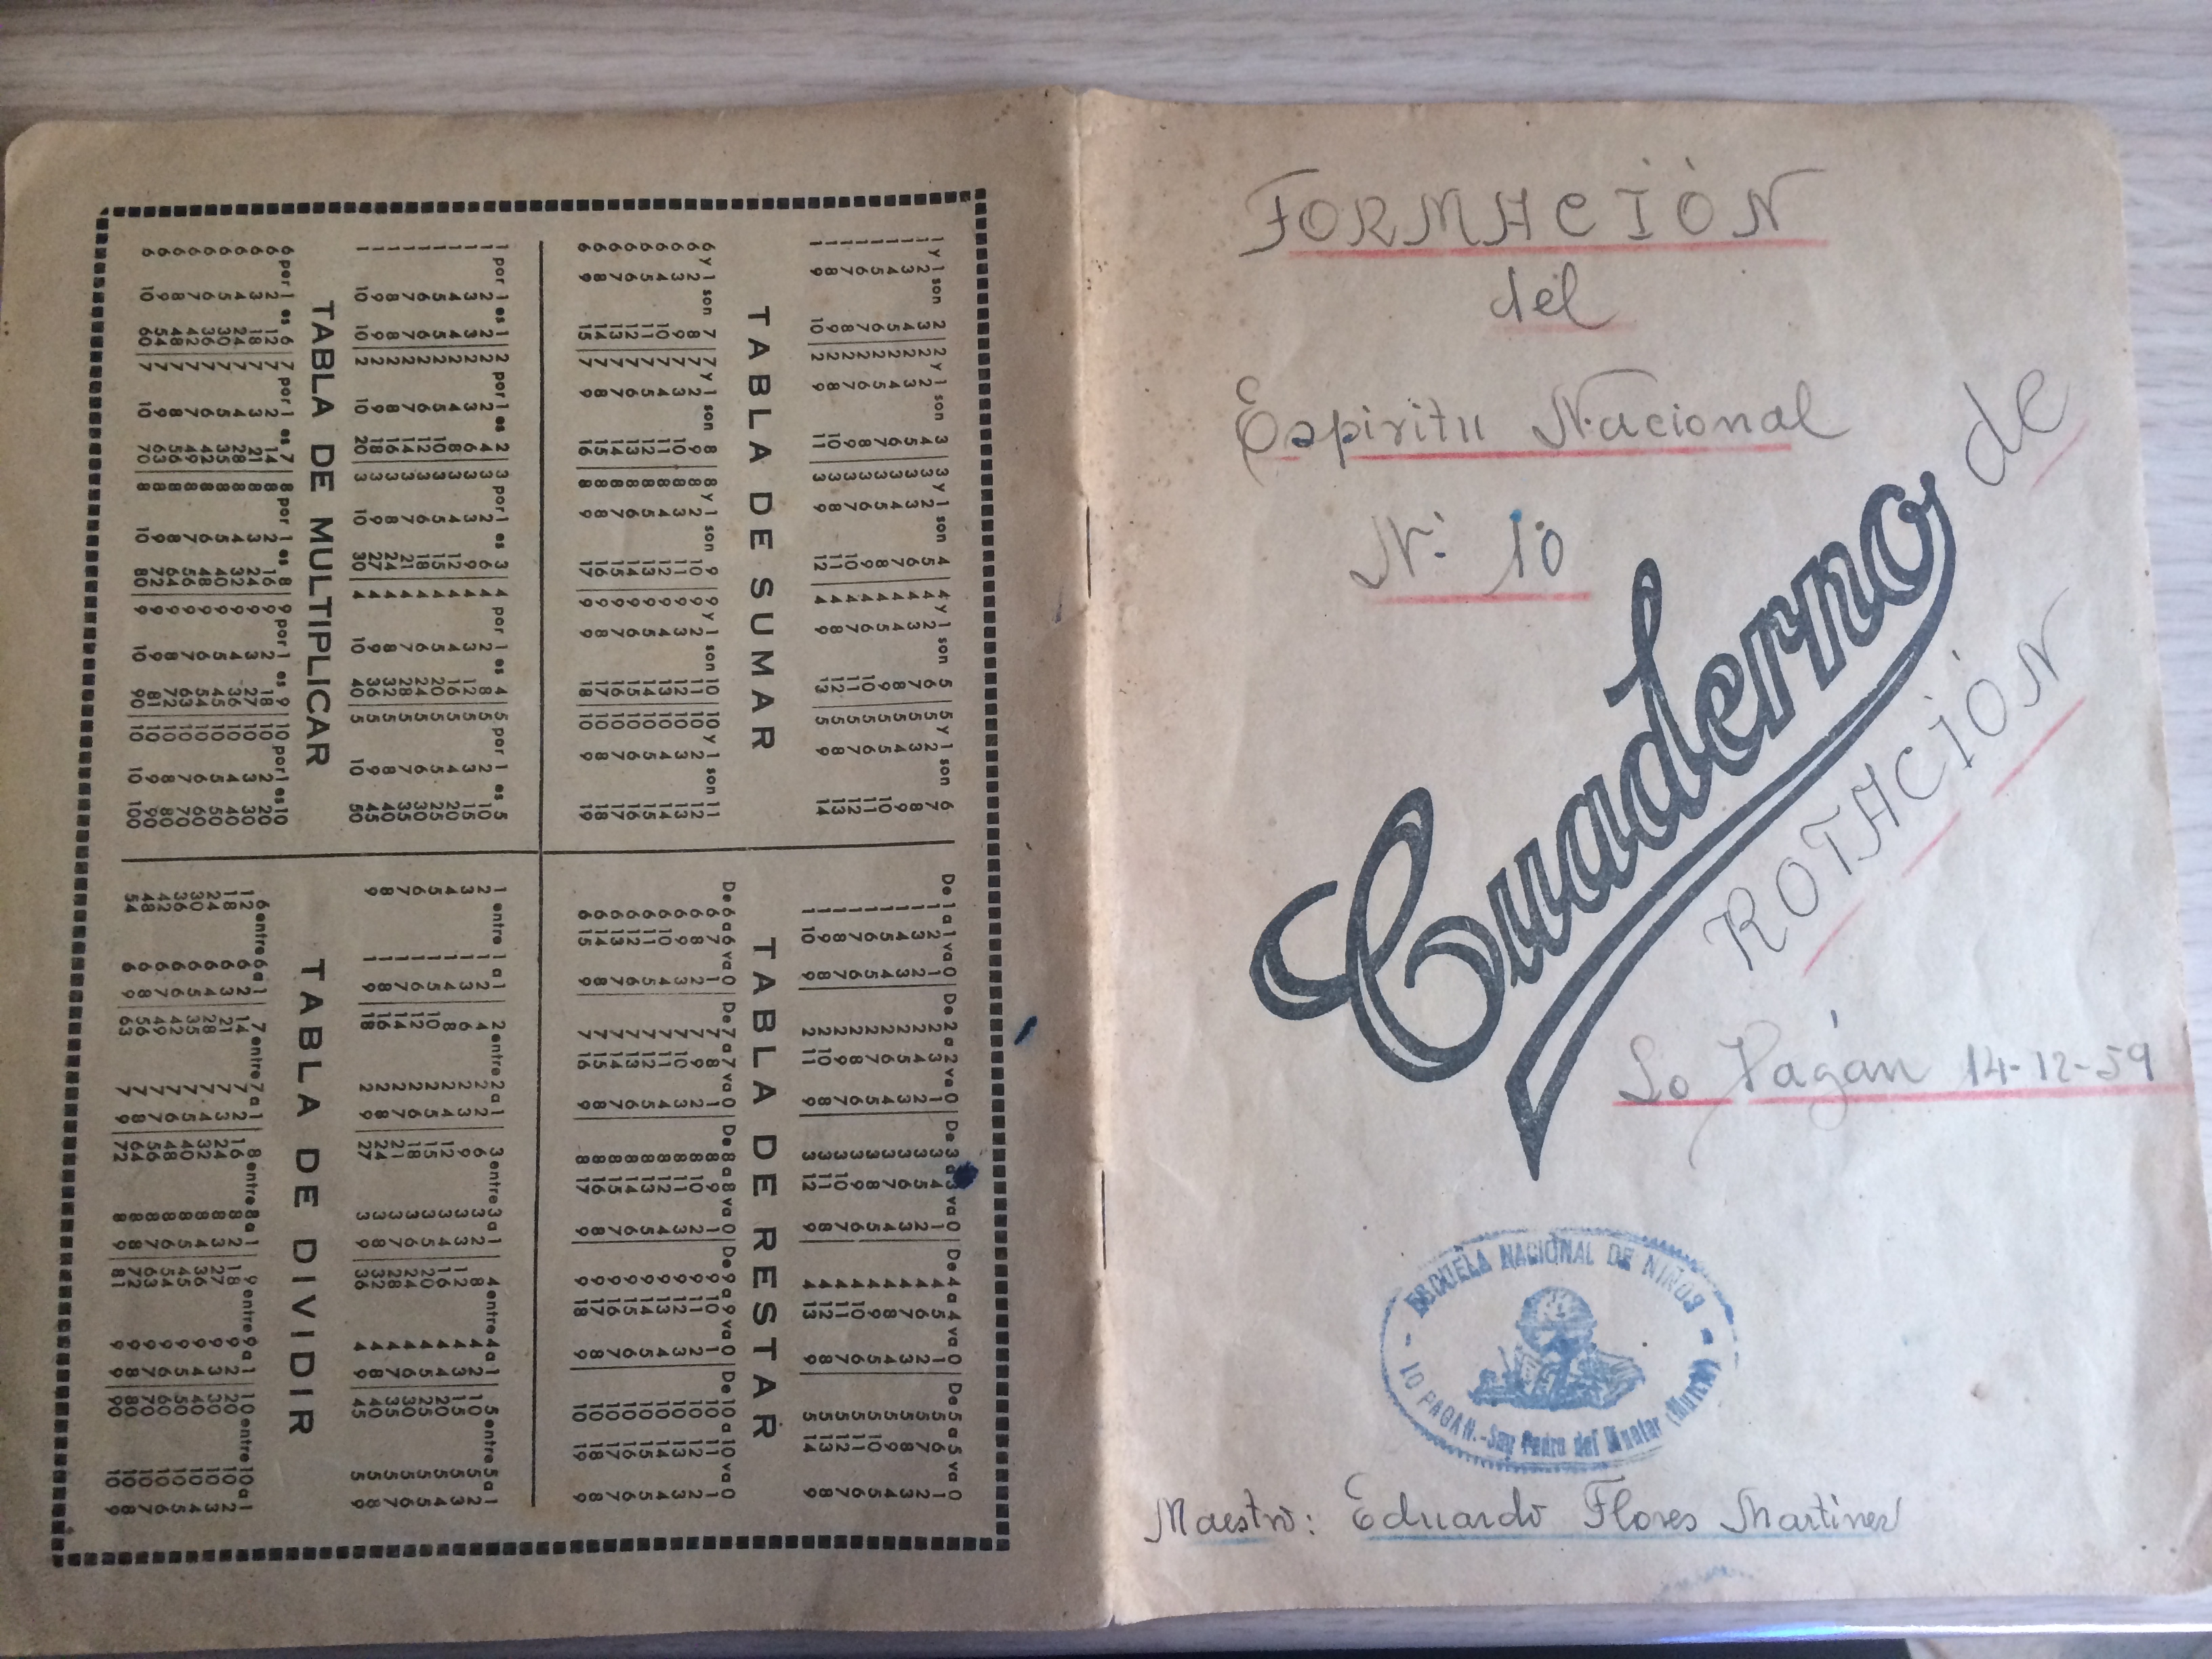 FORMACIÓN
del
Espiritu Nacional
N.º 10
Cuaderno de
ROTACIÓN
Lo Pagán 14-12-59
ESCUELA NACIONAL DE NIÑOS
LO PAGAN.-San Pedro del Pinatar (Murcia)
Maestro: Eduardo Flores Martinez
1 y 1 son 2 2 y 1 son 3 3 y 1 son 4 4 y 1 son 5 5 y 1 son 6
1 2 3 2 2 4 3 2 5 4 2 6 5 2 7
1 3 4 2 3 5 3 3 6 4 3 7 5 3 8
1 4 5 2 4 6 3 4 7 4 4 8 5 4 9
1 5 6 2 5 7 3 5 8 4 5 9 5 5 10
1 6 7 2 6 8 3 6 9 4 6 10 5 6 11
1 7 8 2 7 9 3 7 10 4 7 11 5 7 12
1 8 9 2 8 10 3 8 11 4 8 12 5 8 13
1 9 10 2 9 11 3 9 12 4 9 13 5 9 14
TABLA DE SUMAR
6 y 1 son 7 7 y 1 son 8 8 y 1 son 9 9 y 1 son 10 10 y 1 son 11
6 2 8 7 2 9 8 2 10 9 2 11 10 2 12
6 3 9 7 3 10 8 3 11 9 3 12 10 3 13
6 4 10 7 4 11 8 4 12 9 4 13 10 4 14
6 5 11 7 5 12 8 5 13 9 5 14 10 5 15
6 6 12 7 6 13 8 6 14 9 6 15 10 6 16
6 7 13 7 7 14 8 7 15 9 7 16 10 7 17
6 8 14 7 8 15 8 8 16 9 8 17 10 8 18
6 9 15 7 9 16 8 9 17 9 9 18 10 9 19
De 1 a 1 va 0 De 2 a 2 va 0 De 3 a 3 va 0 De 4 a 4 va 0 De 5 a 5 va 0
1 2 1 2 3 1 3 4 1 4 5 1 5 6 1
1 3 2 2 4 2 3 5 2 4 6 2 5 7 2
1 4 3 2 5 3 3 6 3 4 7 3 5 8 3
1 5 4 2 6 4 3 7 4 4 8 4 5 9 4
1 6 5 2 7 5 3 8 5 4 9 5 5 10 5
1 7 6 2 8 6 3 9 6 4 10 6 5 11 6
1 8 7 2 9 7 3 10 7 4 11 7 5 12 7
1 9 8 2 10 8 3 11 8 4 12 8 5 13 8
1 10 9 2 11 9 3 12 9 4 13 9 5 14 9
TABLA DE RESTAR
De 6 a 6 va 0 De 7 a 7 va 0 De 8 a 8 va 0 De 9 a 9 va 0 De 10 a 10 va 0
6 7 1 7 8 1 8 9 1 9 10 1 10 11 1
6 8 2 7 9 2 8 10 2 9 11 2 10 12 2
6 9 3 7 10 3 8 11 3 9 12 3 10 13 3
6 10 4 7 11 4 8 12 4 9 13 4 10 14 4
6 11 5 7 12 5 8 13 5 9 14 5 10 15 5
6 12 6 7 13 6 8 14 6 9 15 6 10 16 6
6 13 7 7 14 7 8 15 7 9 16 7 10 17 7
6 14 8 7 15 8 8 16 8 9 17 8 10 18 8
6 15 9 7 16 9 8 17 9 9 18 9 10 19 9
1 por 1 es 1 2 por 1 es 2 3 por 1 es 3 4 por 1 es 4 5 por 1 es 5
1 2 2 2 2 4 3 2 6 4 2 8 5 2 10
1 3 3 2 3 6 3 3 9 4 3 12 5 3 15
1 4 4 2 4 8 3 4 12 4 4 16 5 4 20
1 5 5 2 5 10 3 5 15 4 5 20 5 5 25
1 6 6 2 6 12 3 6 18 4 6 24 5 6 30
1 7 7 2 7 14 3 7 21 4 7 28 5 7 35
1 8 8 2 8 16 3 8 24 4 8 32 5 8 40
1 9 9 2 9 18 3 9 27 4 9 36 5 9 45
1 10 10 2 10 20 3 10 30 4 10 40 5 10 50
TABLA DE MULTIPLICAR
6 por 1 es 6 7 por 1 es 7 8 por 1 es 8 9 por 1 es 9 10 por 1 es 10
6 2 12 7 2 14 8 2 16 9 2 18 10 2 20
6 3 18 7 3 21 8 3 24 9 3 27 10 3 30
6 4 24 7 4 28 8 4 32 9 4 36 10 4 40
6 5 30 7 5 35 8 5 40 9 5 45 10 5 50
6 6 36 7 6 42 8 6 48 9 6 54 10 6 60
6 7 42 7 7 49 8 7 56 9 7 63 10 7 70
6 8 48 7 8 56 8 8 64 9 8 72 10 8 80
6 9 54 7 9 63 8 9 72 9 9 81 10 9 90
6 10 60 7 10 70 8 10 80 9 10 90 10 10 100
1 entre 1 a 1 2 entre 2 a 1 3 entre 3 a 1 4 entre 4 a 1 5 entre 5 a 1
2 1 2 4 2 2 6 3 2 8 4 2 10 5 2
3 1 3 6 2 3 9 3 3 12 4 3 15 5 3
4 1 4 8 2 4 12 3 4 16 4 4 20 5 4
5 1 5 10 2 5 15 3 5 20 4 5 25 5 5
6 1 6 12 2 6 18 3 6 24 4 6 30 5 6
7 1 7 14 2 7 21 3 7 28 4 7 35 5 7
8 1 8 16 2 8 24 3 8 32 4 8 40 5 8
9 1 9 18 2 9 27 3 9 36 4 9 45 5 9
TABLA DE DIVIDIR
6 entre 6 a 1 7 entre 7 a 1 8 entre 8 a 1 9 entre 9 a 1 10 entre 10 a 1
12 6 2 14 7 2 16 8 2 18 9 2 20 10 2
18 6 3 21 7 3 24 8 3 27 9 3 30 10 3
24 6 4 28 7 4 32 8 4 36 9 4 40 10 4
30 6 5 35 7 5 40 8 5 45 9 5 50 10 5
36 6 6 42 7 6 48 8 6 54 9 6 60 10 6
42 6 7 49 7 7 56 8 7 63 9 7 70 10 7
48 6 8 56 7 8 64 8 8 72 9 8 80 10 8
54 6 9 63 7 9 72 8 9 81 9 9 90 10 9